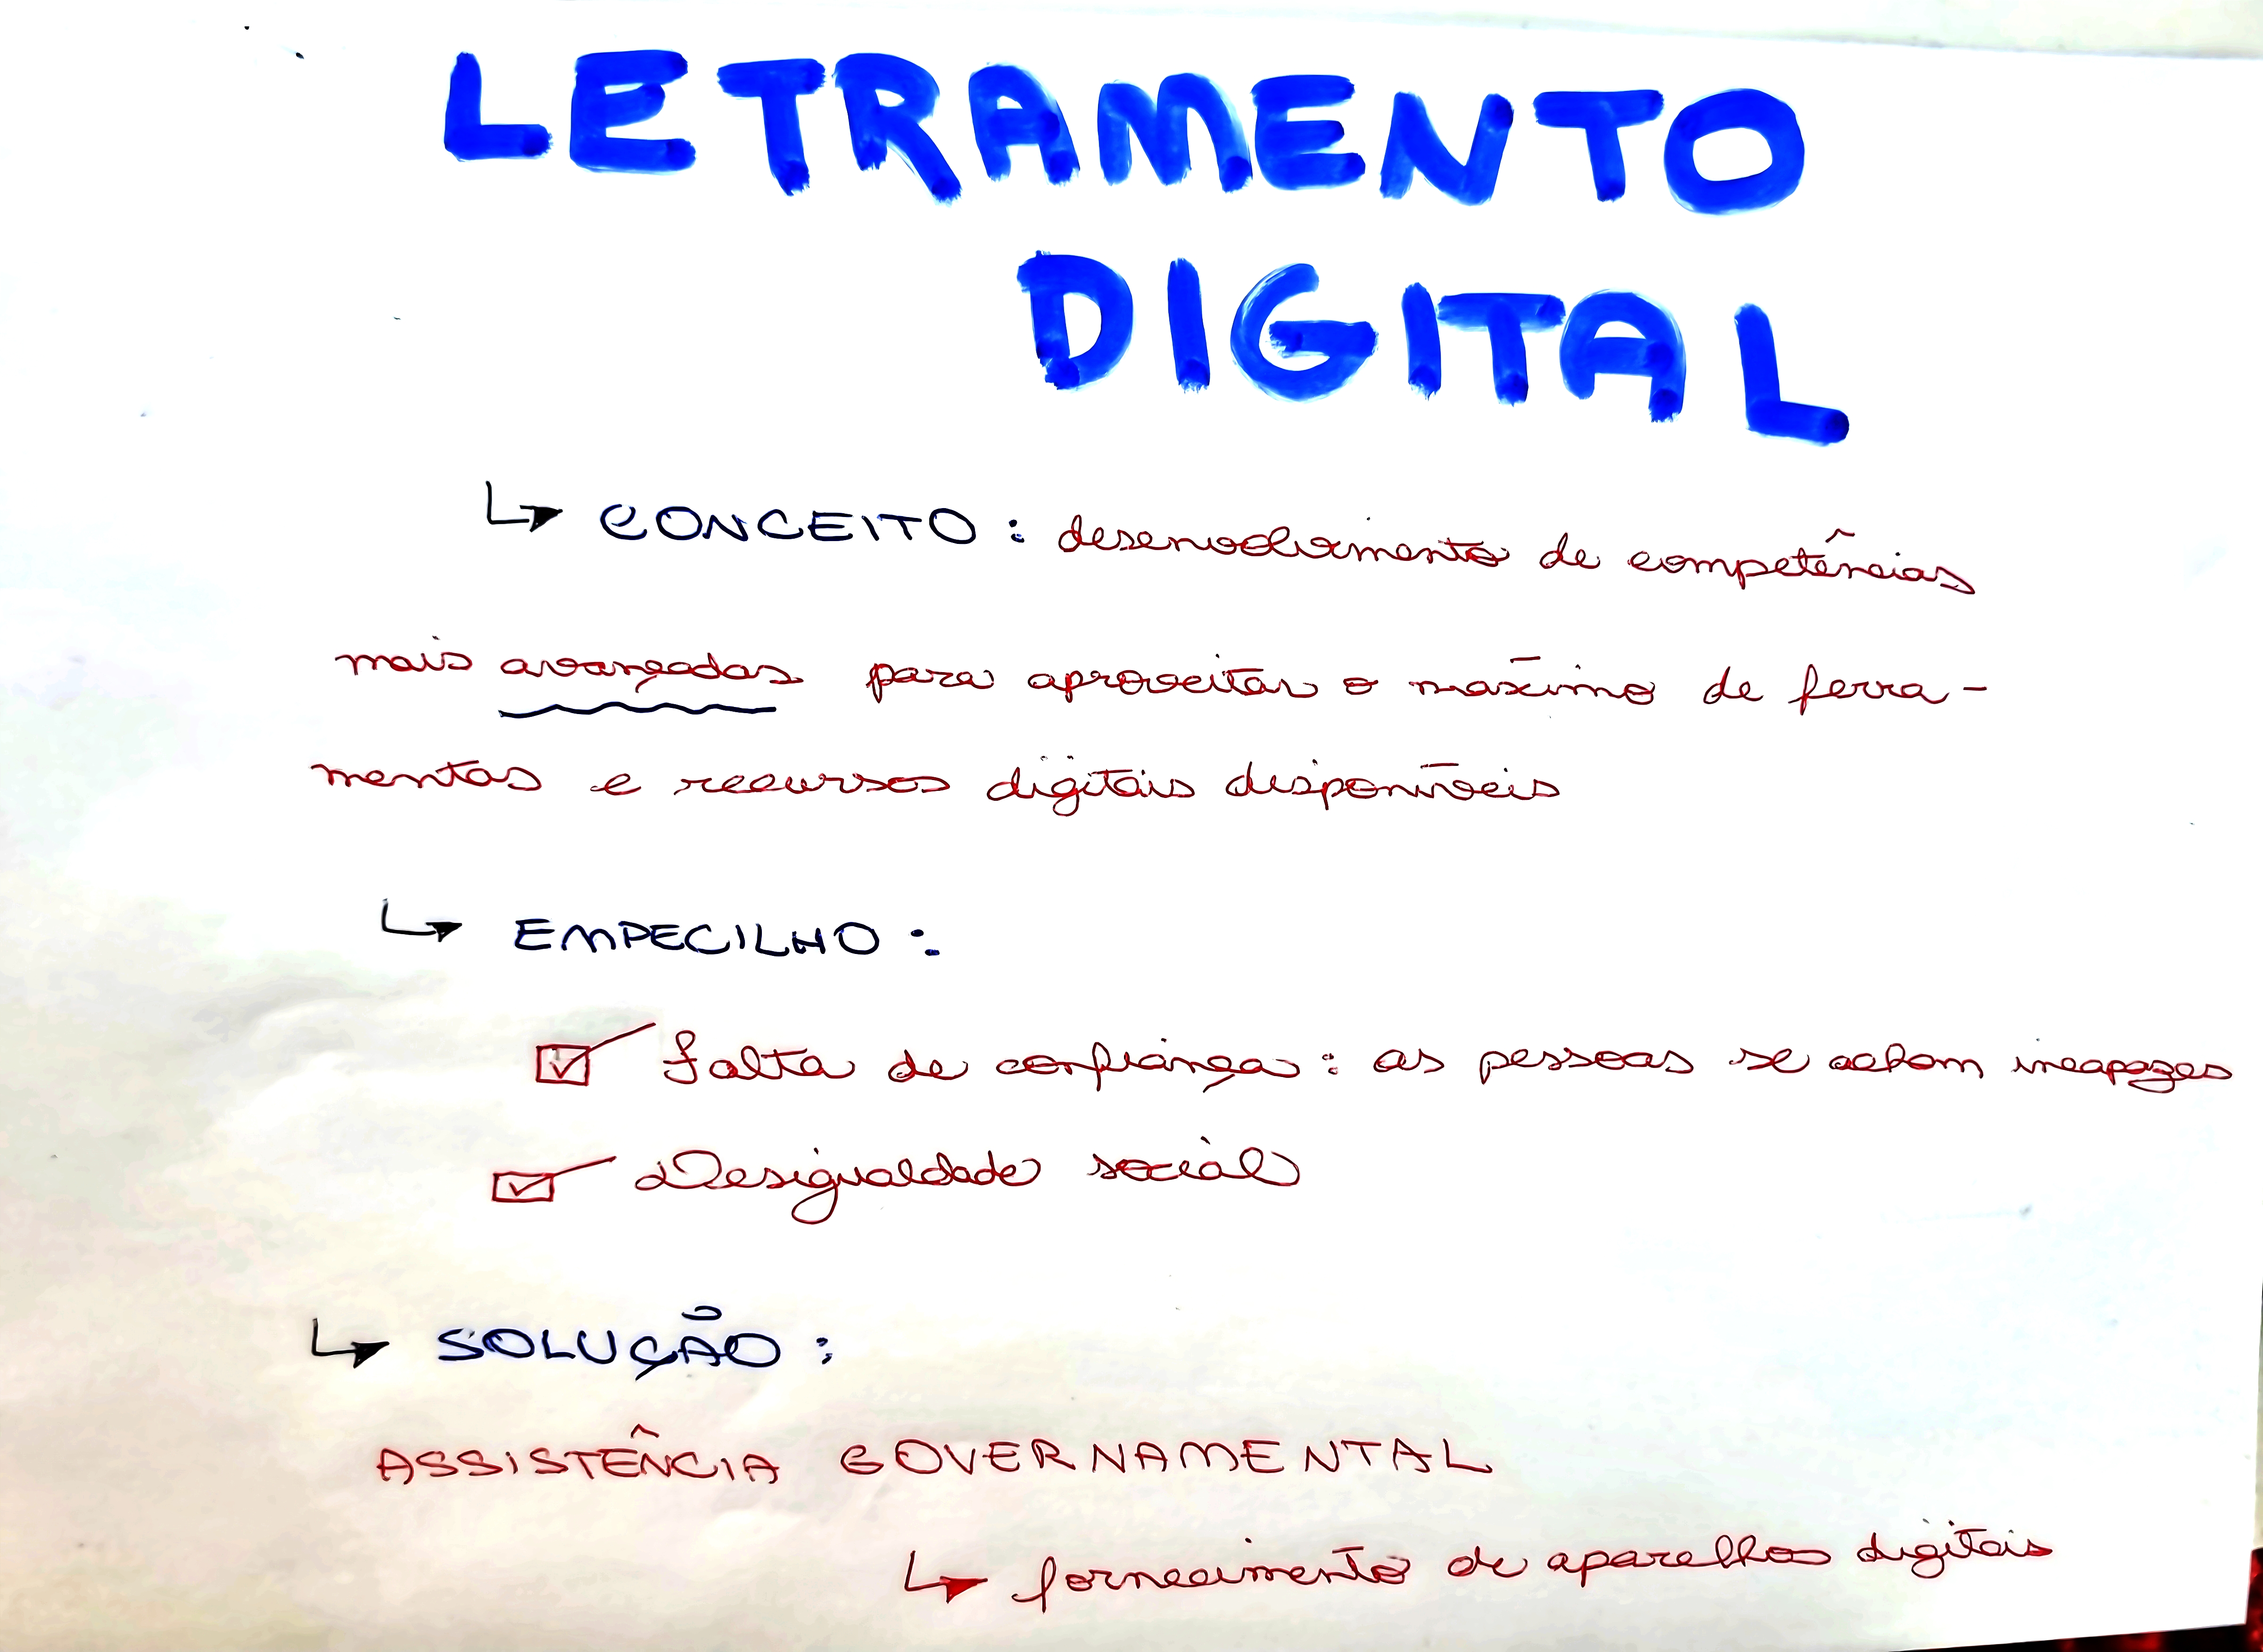 LETRAMENTO
DIGITAL
↳ CONCEITO: desenvolvimento de competências
mais avançadas para aproveitar o máximo de ferra-
mentas e recursos digitais disponíveis
↳ EMPECILHO:
☑ falta de confiança: as pessoas se acham incapazes
☑ Desigualdade social
↳ SOLUÇÃO:
ASSISTÊNCIA GOVERNAMENTAL
↳ fornecimento de aparelhos digitais